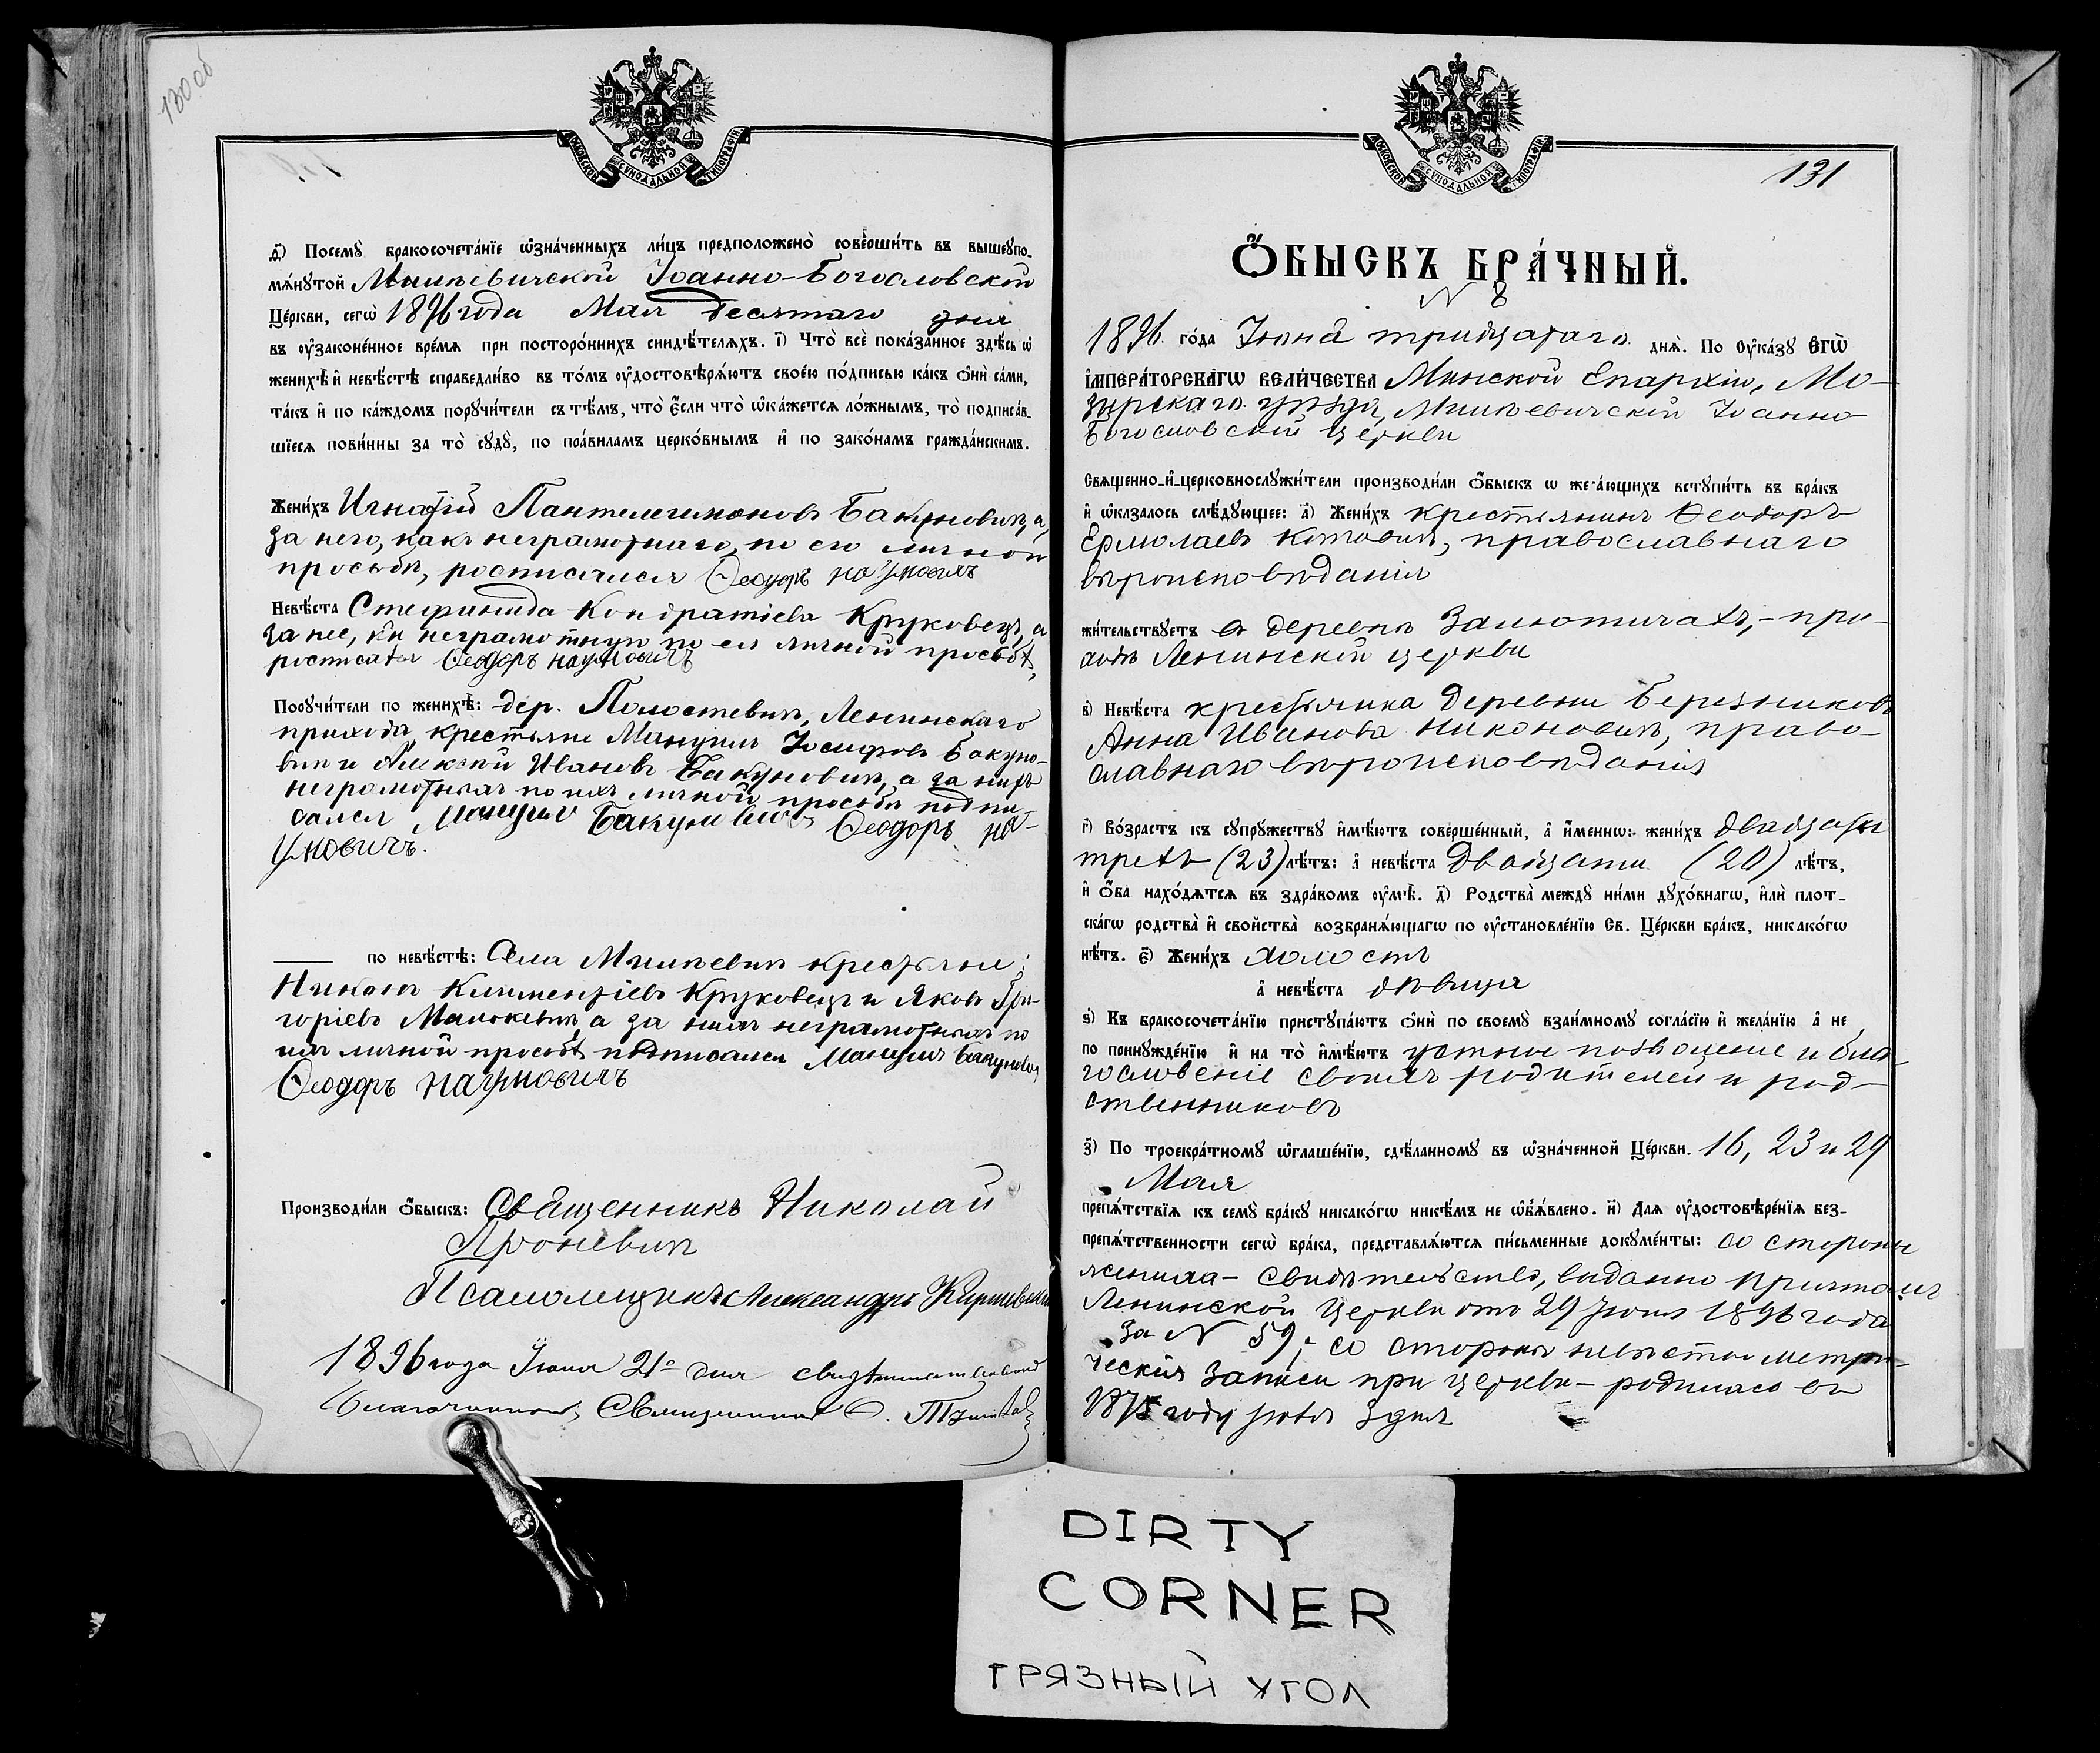 130 об
МОСКОВСКОЙ СѴНОДАЛЬНОЙ ТИПОГРАФІИ
ѳ҃) Посемꙋ̀ бракосочета́нїе ѡ҆зна́ченныхъ ли́цъ предположено̀ соверши́ть въ вышеꙋпо-
мѧ́нꙋтой Милевичской Іоанно-Богословской
Це́ркви, сегѡ̀ 1896 года Мая десятаго дня
въ ᲂу҆законе́нное вре́мѧ при посторо́ннихъ свидѣ́телѧхъ. і҃) Что̀ всѐ пока́занное здѣ́сь ѡ҆
женихѣ̀ и҆ невѣ́стѣ справедли́во въ то́мъ ᲂу҆достовѣрѧ́ютъ свое́ю по́дписью ка́къ ѻ҆нѝ са́ми,
та́къ и҆ по ка́ждомъ порꙋчи́тели съ тѣ́мъ, что̀ є҆́сли что̀ ѡ҆ка́жетсѧ ло́жнымъ, то̀ подписа́в-
шїесѧ пови́нны за то̀ сꙋдꙋ̀, по пра́виламъ церко́внымъ и҆ по зако́намъ гражда́нскимъ.
Жени́хъ Игнатій Пантелеимоновъ Бакуновичъ, а
за него, какъ неграмотнаго, по его личной
просьбѣ, росписался Ѳеодоръ Наумовичъ
Невѣ́ста Стефанида Кондратіева Круковецъ, а
за нее, какъ неграмотную по ея личной просьбѣ,
росписался Ѳеодоръ Наумовичъ
Порꙋчи́тели по женихѣ̀: дер. Поместевичъ, Ленинскаго
прихода, крестьяне Мануилъ Іосифовъ Бакуно-
вичъ и Алексѣй Ивановъ Бакуновичъ, а за нихъ
неграмотныхъ по ихъ личной просьбѣ подпи-
сался Мануилъ Бакуновичъ Ѳеодоръ На-
умовичъ.
по невѣ́стѣ: Села Милевичъ крестьяне:
Никонъ Климентіевъ Круковецъ и Яковъ Гри-
горіевъ Малькевичъ, а за нихъ неграмотныхъ по
ихъ личной просьбѣ подписался Мануилъ Бакуновичъ
Ѳеодоръ Наумовичъ
Производи́ли ѻ҆́быскъ: Священникъ Николай
Проневичъ
Псаломщикъ Александръ
1896 года Іюня 21го дня свидѣтельствовалъ
Благочинный, Священникъ
МОСКОВСКОЙ СѴНОДАЛЬНОЙ ТИПОГРАФІИ
131
Ѻ҆́БЫСКЪ БРА́ЧНЫЙ.
N 8
1896 го́да Іюня тридцатаго днѧ̀. По ᲂу҆ка́зꙋ Є҆ГѠ̀
І҆МПЕРА́ТОРСКАГѠ ВЕЛИ́ЧЕСТВА Минской Епархіи, Мо-
зырскаго уѣзда, Милевичской Іоанно-
Богословской церкви
Свѧщенно-и҆-церковнослꙋжи́тели производи́ли ѻ҆́быскъ ѡ҆ жела́ющихъ встꙋпи́ть въ бра́къ
и҆ ѡ҆казалось слѣ́дꙋющее: а҃) Жени́хъ крестьянинъ Ѳеодоръ
Ермолаевъ Котовичъ, православнаго
вѣроисповѣданія
жи́тельствꙋетъ въ деревнѣ Залютичахъ,- при-
ходѣ Ленинской церкви
в҃) Невѣ́ста крестьянка деревни Березниковъ
Анна Иванова Никоновичъ, право-
славнаго вѣроисповѣданія
г҃) Во́зрастъ къ сꙋпрꙋ́жествꙋ и҆мѣ́ютъ соверше́нный, а҆ и҆́менно: жени́хъ двадцати
трехъ (23) лѣ́тъ: а҆ невѣ́ста двадцати (20) лѣ́тъ,
и҆ ѻ҆́ба нахо́дѧтсѧ въ здра́вомъ ᲂу҆мѣ̀. д҃) Родства̀ междꙋ̀ ни́ми дꙋхо́внагѡ, и҆лѝ плот-
ска́гѡ родства̀ и҆ свойства̀ возбранѧ́ющагѡ по ᲂу҆становле́нїю Св. Це́ркви бра́къ, никако́гѡ
нѣ́тъ. є҃) Жени́хъ холостъ
а҆ невѣ́ста дѣвица
ѕ҃) Къ бракосочета́нїю пристꙋпа́ютъ ѻ҆нѝ по своемꙋ̀ взаи́мномꙋ согла́сїю и҆ жела́нїю а҆ не
по принꙋжде́нїю и҆ на то̀ и҆мѣ́ютъ устное позволеніе и бла-
гословеніе своихъ родителей и род-
ственниковъ
з҃) По троекра́тномꙋ ѡ҆глаше́нїю, сдѣ́ланномꙋ въ ѡ҆зна́ченной Це́ркви. 16, 23 и 29
Мая
препѧ́тствїѧ къ семꙋ̀ бра́кꙋ никако́гѡ никѣ́мъ не ѡ҆б̾ѧ́влено. и҃) Длѧ ᲂу҆достовѣре́нїѧ без-
препѧ́тственности сегѡ̀ бра́ка, представлѧ́ютсѧ пи́сьменные докꙋме́нты: со стороны
жениха - свидѣтельство, выданно причтомъ
Ленинской Церкви отъ 29 Іюня 1896 года
за N 59; со стороны невѣсты метри-
ческія записи при церкви - родилась въ
1875 году 3 дня
DIRTY
CORNER
ГРЯЗНЫЙ УГОЛ